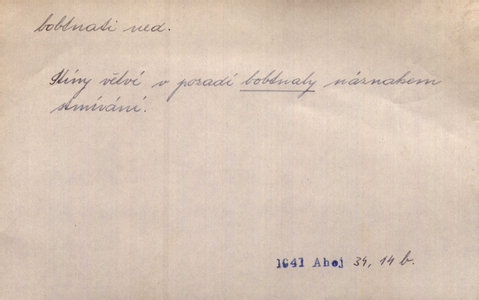 bobtnati ned.
Stíny větví v pozadí bobtnaly náznakem
stmívání.
1941 Ahoj 34, 14 b.